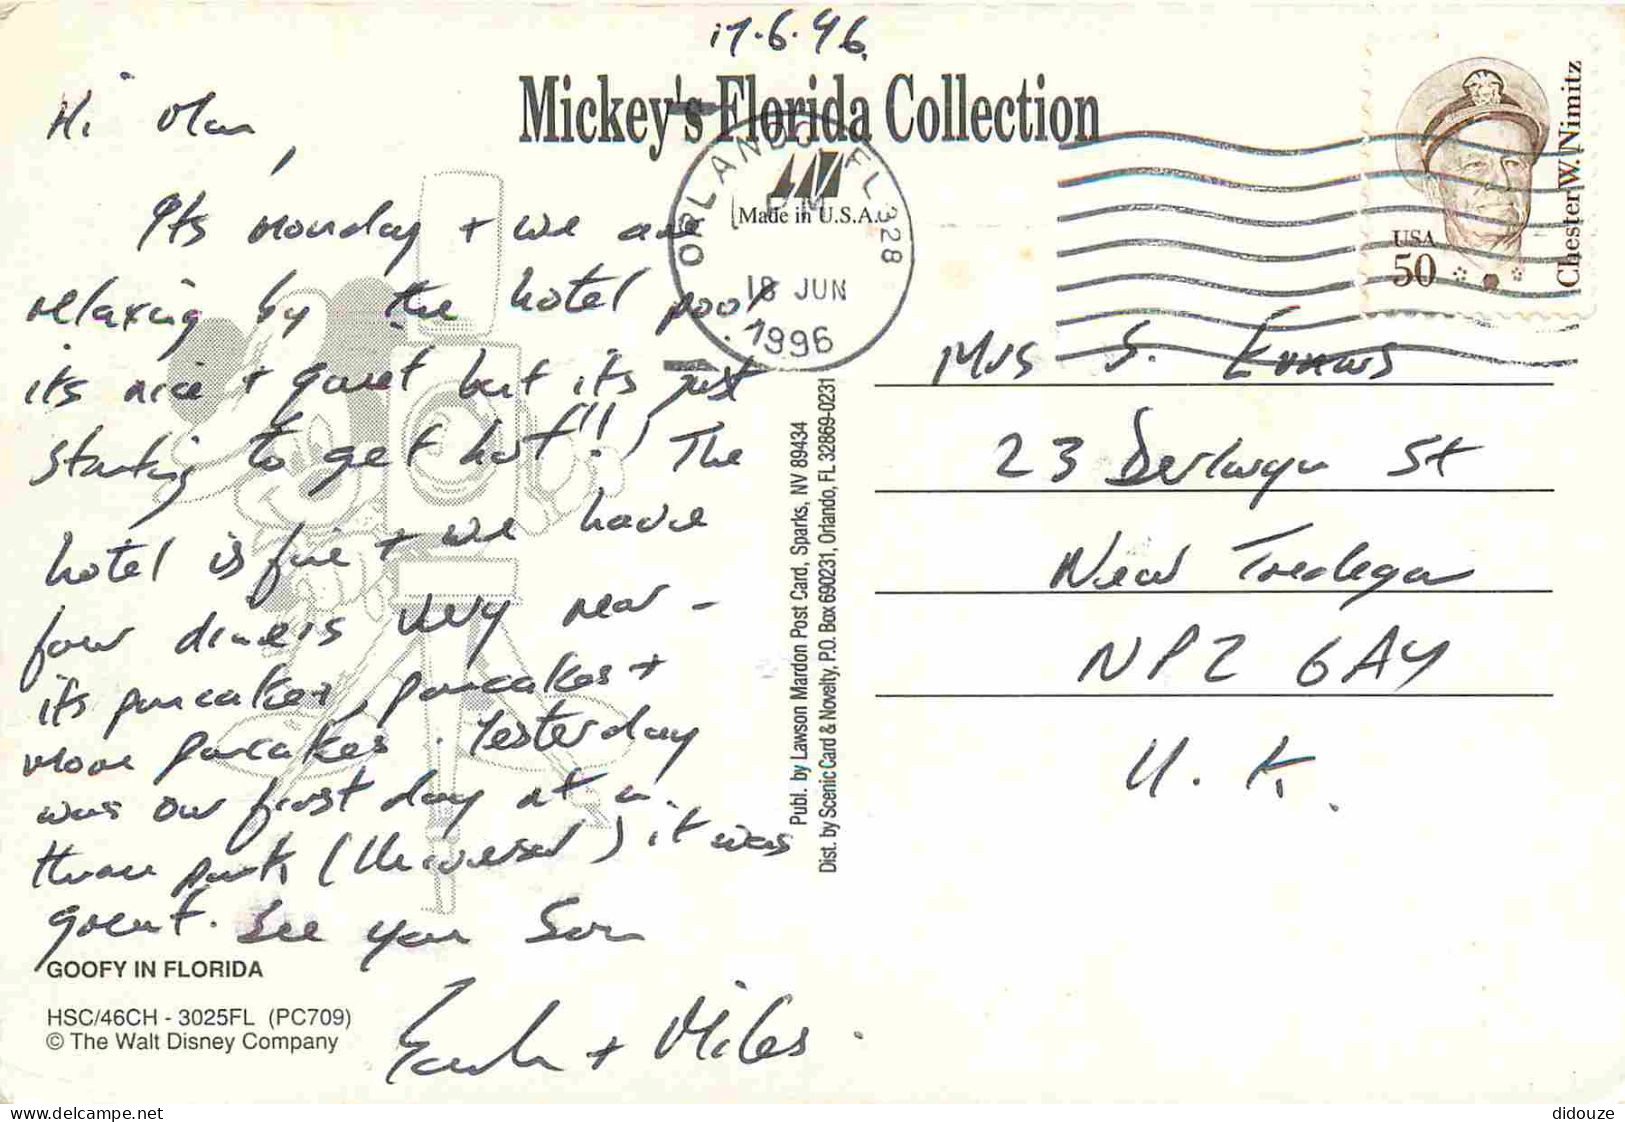 17.6.96
Mickey's Florida Collection
Made in U.S.A.
ORLANDO FL 328
PM
18 JUN
1996
USA
50
Chester W. Nimitz
Hi Mam,
Its Monday + we are
relaxing by the hotel pool
its nice + quiet but its just
starting to get hot!! The
hotel is fine + we have
four diners very near –
its pancakes, pancakes +
more pancakes. Yesterday
was our first day at a
theme park (Universal) it was
great. See you Soon
+ Miles.
Mrs S. Evans
23 St
New Tredegar
NP2 6AY
U.K.
Publ. by Lawson Mardon Post Card, Sparks, NV 89434
Dist. by Scenic Card & Novelty, P.O. Box 690231, Orlando, FL 32869-0231
GOOFY IN FLORIDA
HSC/46CH - 3025FL (PC709)
© The Walt Disney Company
delcampe.net
didouze